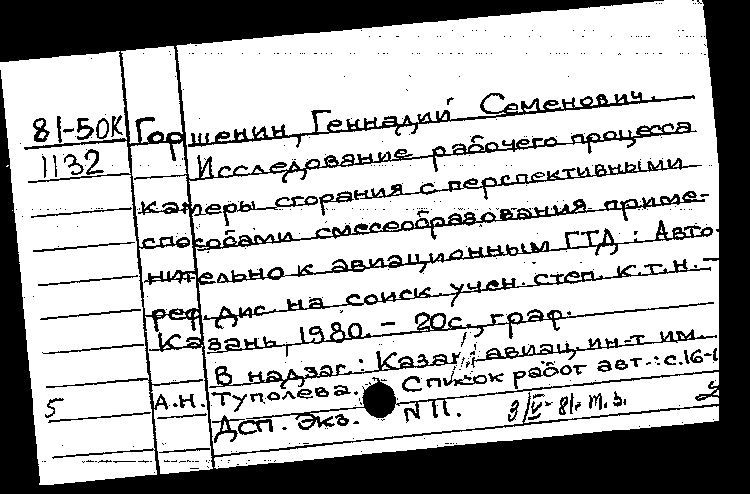 81-50К Горшенин, Геннадий Семенович.
1132 Исследование рабочего процесса
камеры сгорания с перспективными
способами смесеобразования приме-
нительно к авиационным ГТД : Авто-
реф. Дис. на соиск. учен. степ. к.т.н. -
Казань, 1980. - 20с., граф.
В надзаг.: Казан. авиац. ин-т им.
5 А.Н. Туполева. Список работ авт.: с.16-1
ДСП. Экз. N 11. 3/V-81г. М.З.